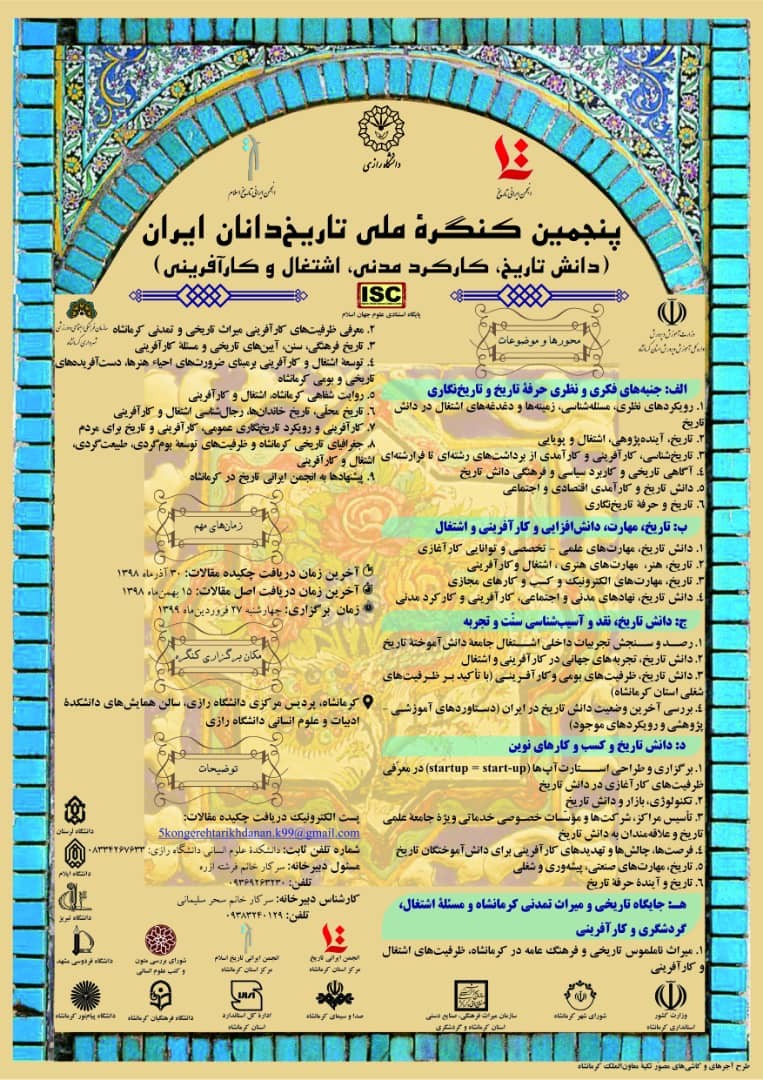 دانشگاه رازی
انجمن ایرانی تاریخ
انجمن ایرانی تاریخ اسلام
پنجمین کنگرهٔ ملی تاریخ‌دانان ایران
(دانش تاریخ، کارکرد مدنی، اشتغال و کارآفرینی)
ISC
پایگاه استنادی علوم جهان اسلام
وزارت آموزش و پرورش
اداره کل آموزش و پرورش استان کرمانشاه
محورها و موضوعات
الف: جنبه‌های فکری و نظری حرفهٔ تاریخ و تاریخ‌نگاری
۱. رویکردهای نظری، مسئله‌شناسی، زمینه‌ها و دغدغه‌های اشتغال در دانش
تاریخ
۲. تاریخ، آینده‌پژوهی، اشتغال و پویایی
۳. تاریخ‌شناسی، کارآفرینی و کارآمدی از برداشت‌های رشته‌ای تا فرارشته‌ای
۴. آگاهی تاریخی و کاربرد سیاسی و فرهنگی دانش تاریخ
۵. دانش تاریخ و کارآمدی اقتصادی و اجتماعی
۶. تاریخ و حرفهٔ تاریخ‌نگاری
ب: تاریخ، مهارت، دانش‌افزایی و کارآفرینی و اشتغال
۱. دانش تاریخ، مهارت‌های علمی - تخصصی و توانایی کارآغازی
۲. تاریخ، هنر، مهارت‌های هنری ، اشتغال وکارآفرینی
۳. تاریخ، مهارت‌های الکترونیک و کسب و کارهای مجازی
۴. دانش تاریخ، نهادهای مدنی و اجتماعی، کارآفرینی و کارکرد مدنی
ج: دانش تاریخ، نقد و آسیب‌شناسی سنّت و تجربه
۱. رصد و سنجش تجربیات داخلی اشتغال جامعهٔ دانش‌آموختهٔ تاریخ
۲. دانش تاریخ، تجربه‌های جهانی در کارآفرینی و اشتغال
۳. دانش تاریخ، ظرفیت‌های بومی وکارآفرینی (با تأکید بر ظرفیت‌های
شغلی استان کرمانشاه)
۴. بررسی آخرین وضعیت دانش تاریخ در ایران (دستاوردهای آموزشی -
پژوهشی و رویکردهای موجود)
د: دانش تاریخ و کسب و کارهای نوین
۱. برگزاری و طراحی استارت‌آپ‌ها (startup = start-up) در معرّفی
ظرفیت‌های کارآغازی در دانش تاریخ
۲. تکنولوژی، بازار و دانش تاریخ
۳. تأسیس مراکز، شرکت‌ها و مؤسّسات خصوصی خدماتی ویژهٔ جامعهٔ علمی
تاریخ و علاقه‌مندان به دانش تاریخ
۴. فرصت‌ها، چالش‌ها و تهدیدهای کارآفرینی برای دانش‌آموختگان تاریخ
۵. تاریخ، مهارت‌های صنعتی، پیشه‌وری و شغلی
۶. تاریخ و آیندهٔ حرفهٔ تاریخ
هـ: جایگاه تاریخی و میراث تمدنی کرمانشاه و مسئلهٔ اشتغال،
گردشگری و کارآفرینی
۱. میراث ناملموس تاریخی و فرهنگ عامه در کرمانشاه، ظرفیت‌های اشتغال
و کارآفرینی
سازمان فرهنگی اجتماعی ورزشی
شهرداری کرمانشاه
۲. معرفی ظرفیت‌های کارآفرینی میراث تاریخی و تمدنی کرمانشاه
۳. تاریخ فرهنگی، سنن، آیین‌های تاریخی و مسئلهٔ کارآفرینی
۴. توسعهٔ اشتغال و کارآفرینی برمبنای ضرورت‌های احیاء هنرها، دست‌آفریده‌های
تاریخی و بومی کرمانشاه
۵. روایت شفاهی کرمانشاه، اشتغال و کارآفرینی
۶. تاریخ محلّی، تاریخ خاندان‌ها، رجال‌شناسی اشتغال و کارآفرینی
۷. کارآفرینی و رویکرد تاریخ‌نگاری عمومی، کارآفرینی و تاریخ برای مردم
۸. جغرافیای تاریخی کرمانشاه و ظرفیت‌های توسعهٔ بوم‌گردی، طبیعت‌گردی،
اشتغال و کارآفرینی
۹. پیشنهادها به انجمن ایرانی تاریخ در کرمانشاه
زمان‌های مهم
آخرین زمان دریافت چکیده مقالات: ۳۰ آذرماه ۱۳۹۸
آخرین زمان دریافت اصل مقالات: ۱۵ بهمن‌ماه ۱۳۹۸
زمان برگزاری: چهارشنبه ۲۷ فروردین‌ماه ۱۳۹۹
مکان برگزاری کنگره
کرمانشاه، پردیس مرکزی دانشگاه رازی، سالن همایش‌های دانشکدهٔ
ادبیات و علوم انسانی دانشگاه رازی
توضیحات
پست الکترونیک دریافت چکیده مقالات:
5kongerehtarikhdanan.k99@gmail.com
شماره تلفن ثابت: دانشکدهٔ علوم انسانی دانشگاه رازی: ۰۸۳۳۴۲۶۷۶۳۳
مسئول دبیرخانه: سرکار خانم فرشته ازره
تلفن: ۰۹۳۶۹۲۶۳۲۳۰
کارشناس دبیرخانه: سرکار خانم سحر سلیمانی
تلفن: ۰۹۳۸۳۲۴۰۱۲۹
دانشگاه لرستان
دانشگاه ایلام
دانشگاه تبریز
انجمن ایرانی تاریخ
مرکز استان کرمانشاه
انجمن ایرانی تاریخ اسلام
مرکز استان کرمانشاه
شورای بررسی متون
و کتب علوم انسانی
دانشگاه فردوسی مشهد
وزارت کشور
استانداری کرمانشاه
شورای شهر کرمانشاه
سازمان میراث فرهنگی، صنایع دستی
استان کرمانشاه و گردشگری
صدا و سیمای کرمانشاه
ادارهٔ کل استاندارد
استان کرمانشاه
دانشگاه فرهنگیان کرمانشاه
دانشگاه پیام‌نور کرمانشاه
طرح آجرهای و کاشی‌های مصور تکیهٔ معاون‌الملک کرمانشاه